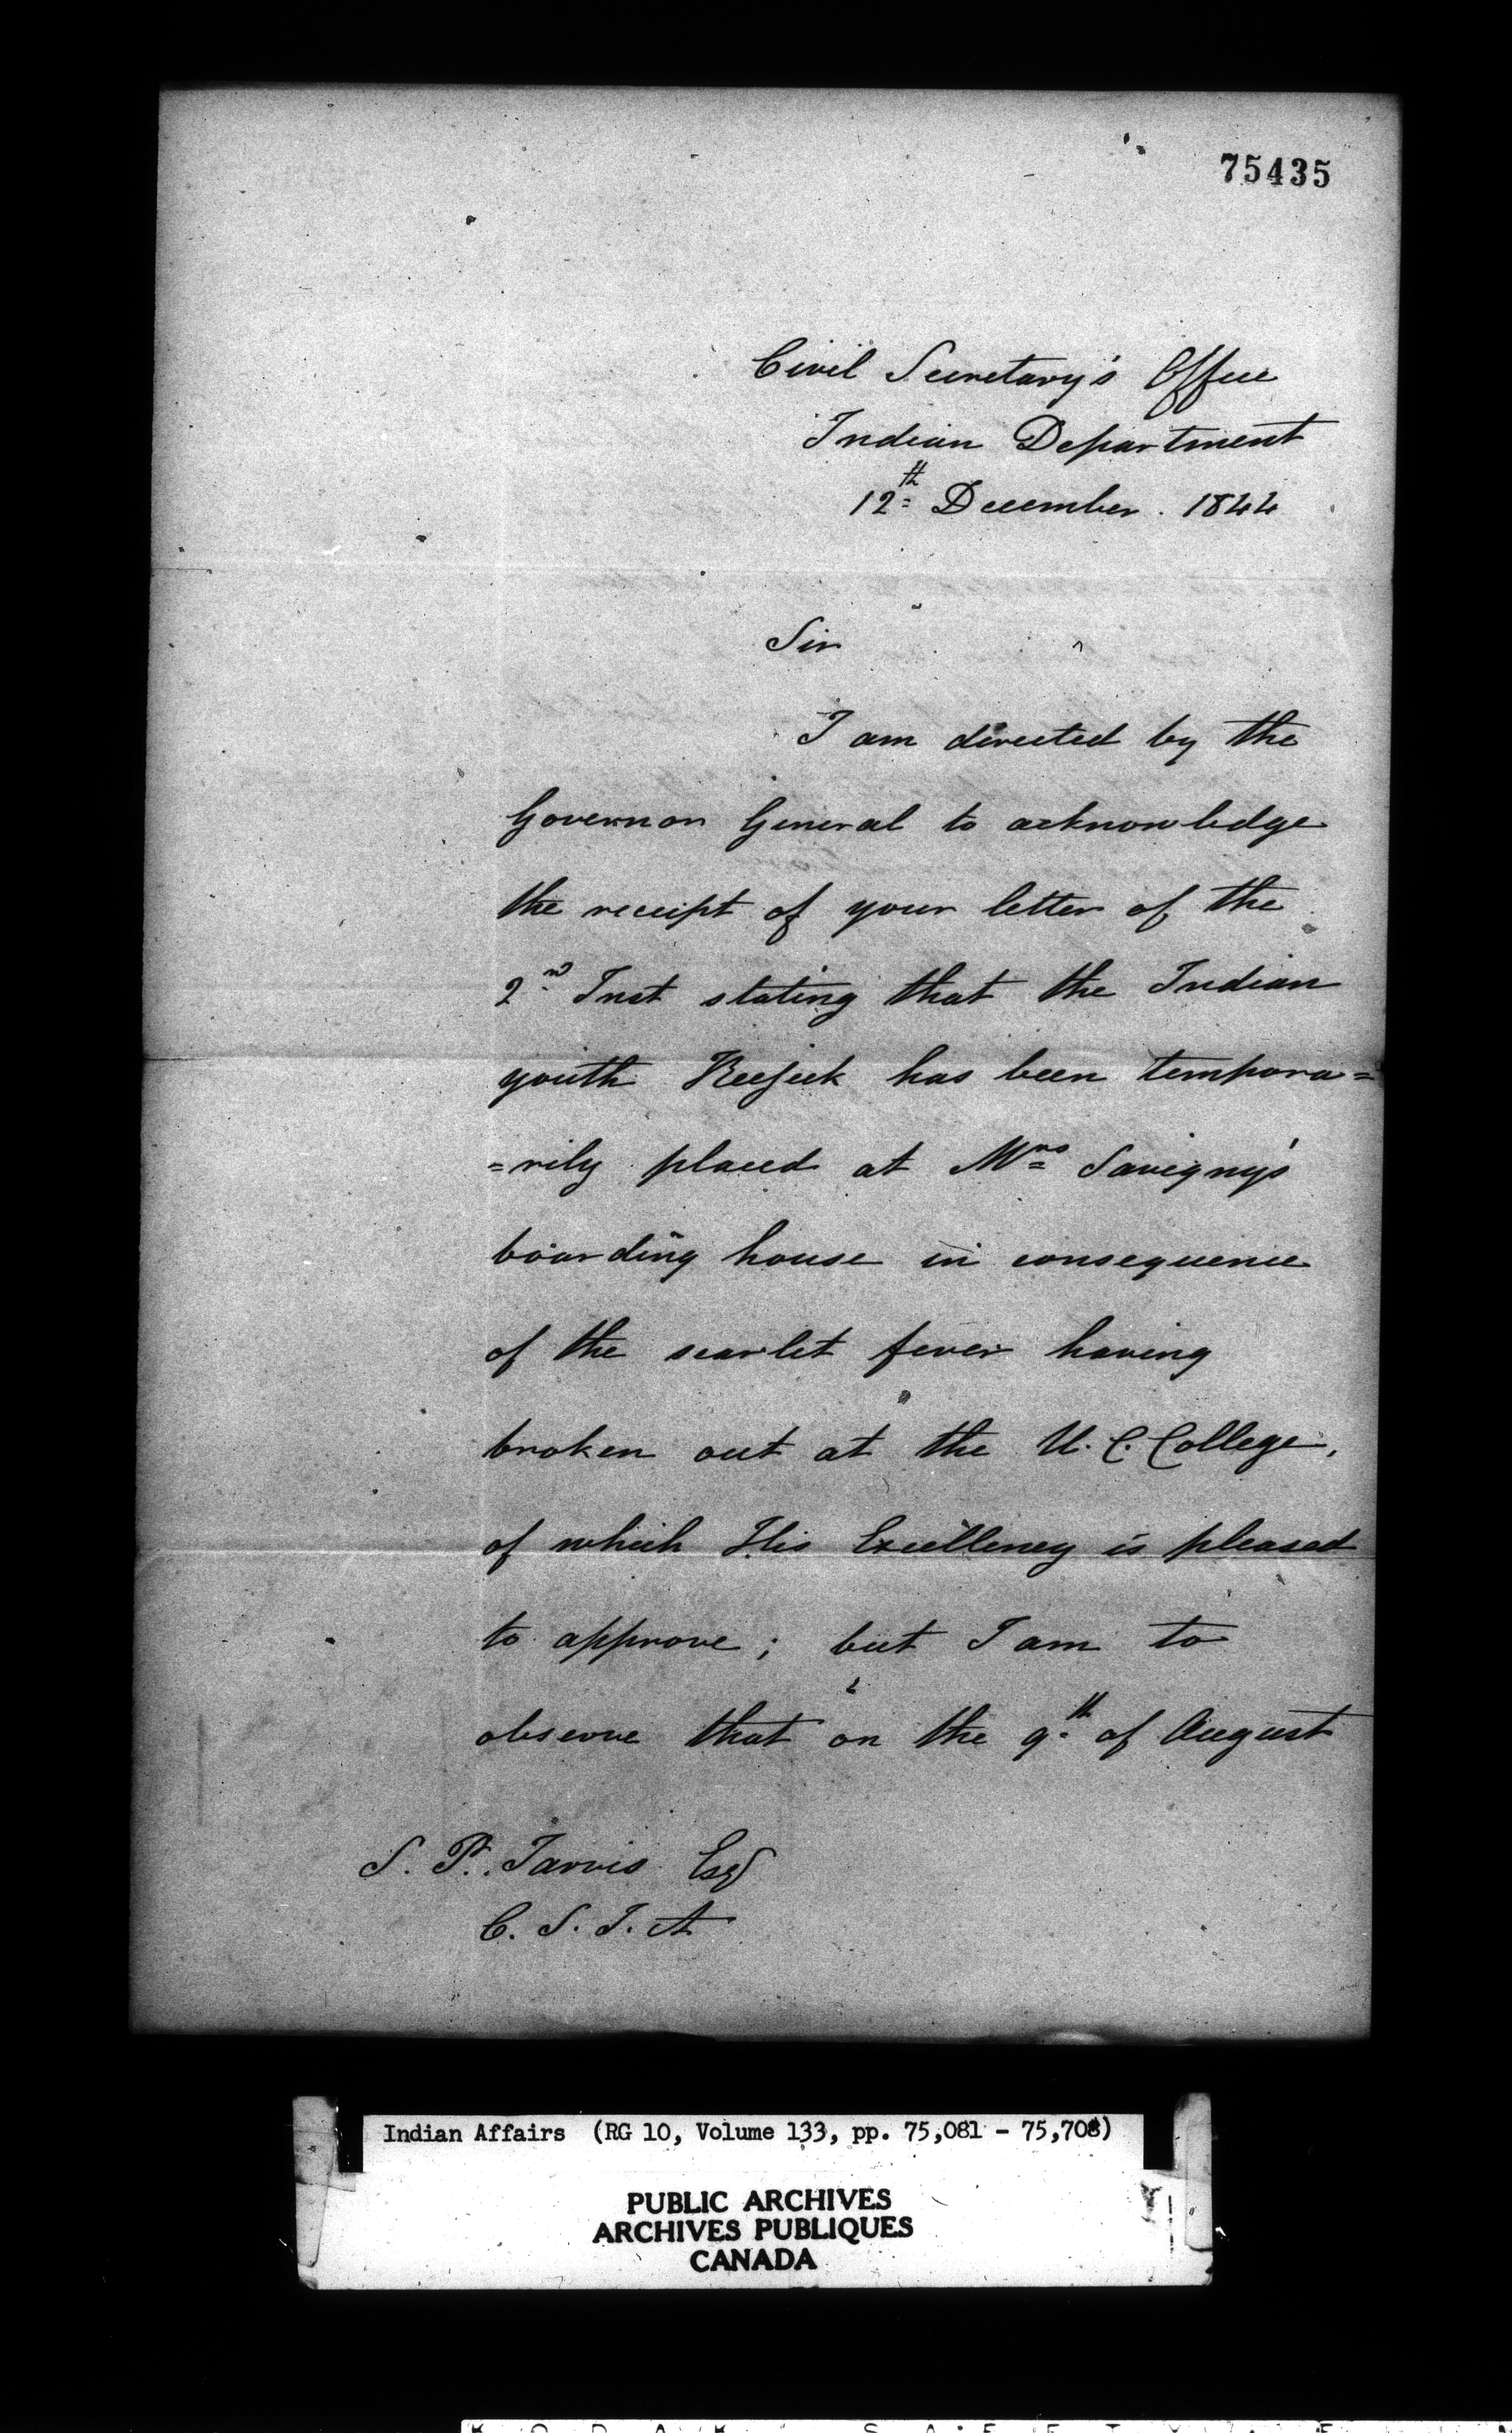 75435
Civil Secretary's Office
Indian Department
12th December. 1844
Sir
I am directed by the
Governor General to acknowledge
the receipt of your letter of the
2nd Inst stating that the Indian
youth has been tempora=
=rily placed at Mrs Savigny's
boarding house in consequence
of the scarlet fever having
broken out at the U. C. College,
of which His Excellency is pleased
to approve; but I am to
observe that on the 9th of August
S. P. Jarvis Esq
C. S. I. A
Indian Affairs (RG 10, Volume 133, pp. 75,081 - 75,708)
PUBLIC ARCHIVES
ARCHIVES PUBLIQUES
CANADA